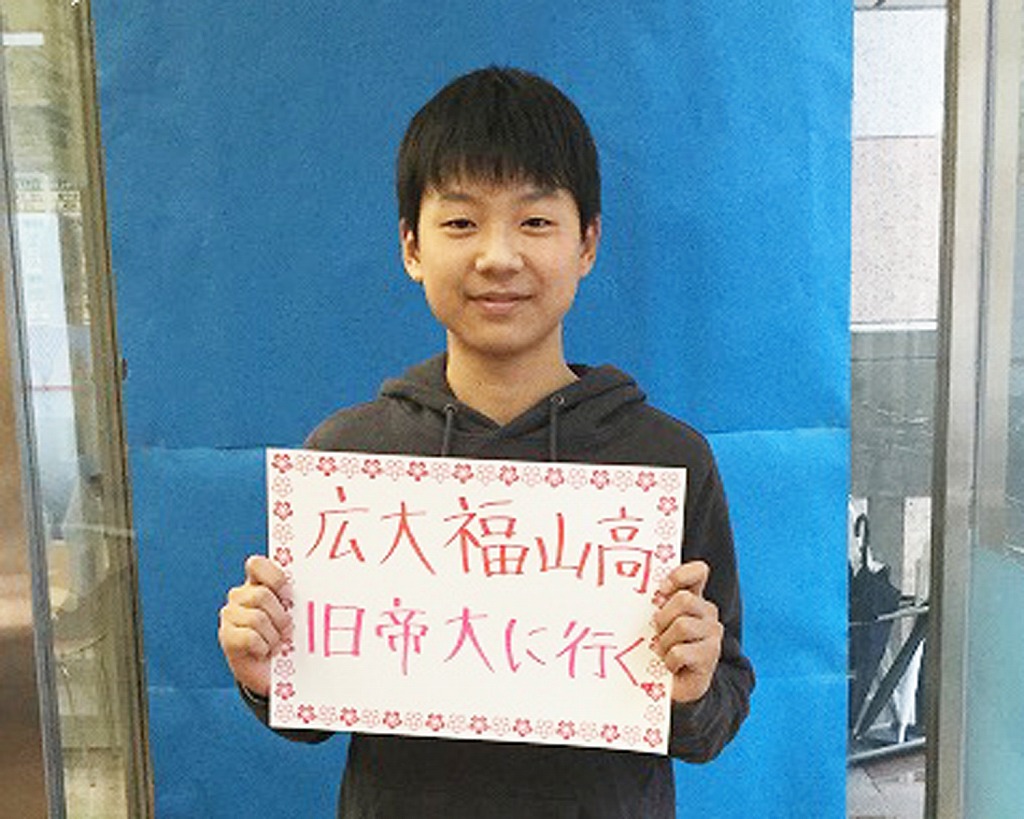 広大福山高
旧帝大に行く